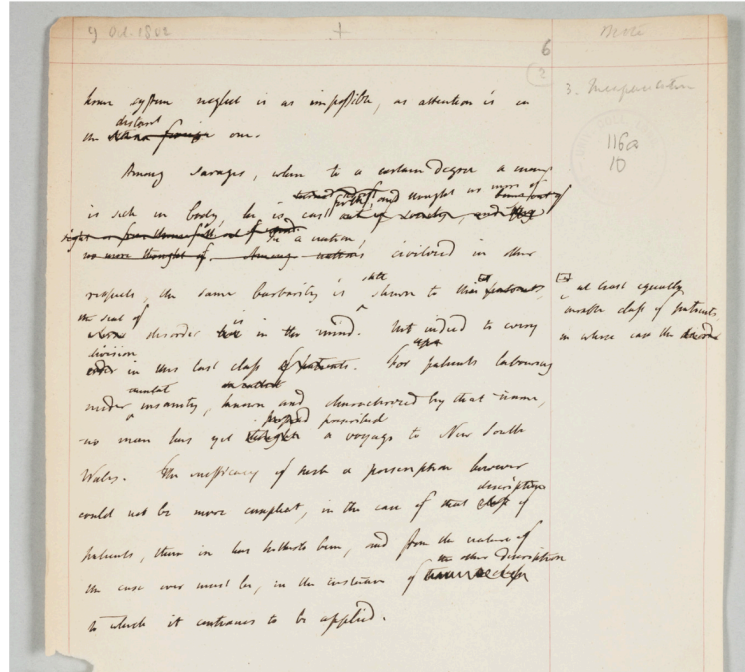 9 Oct. 1802
+
Note
6
2
3. Incapacitation
116a
10
home system neglect is as impossible, as attention is in
distant
the one.
Among savages, when to a certain degree a man
forth, and thought no more of
is sick in body, he is cast
In a nation,
no more thought of. Among nations civilized in other
respects, the same barbarity is still shewn to
at least equally
curable class of patients,
in whose case the
the seat of
disorder is in the mind. Not indeed to every
division
in this last class of patients. For patients labouring
under mental insanity, known and characterized by that name,
proposed prescribed
no man has yet a voyage to New South
Wales. The inefficacy of such a prescription however
could not be more compleat, in the case of that description of
patients, than it has hitherto been, and from the nature of
the case ever must be, in the instance of the other description
to which it continues to be applied.